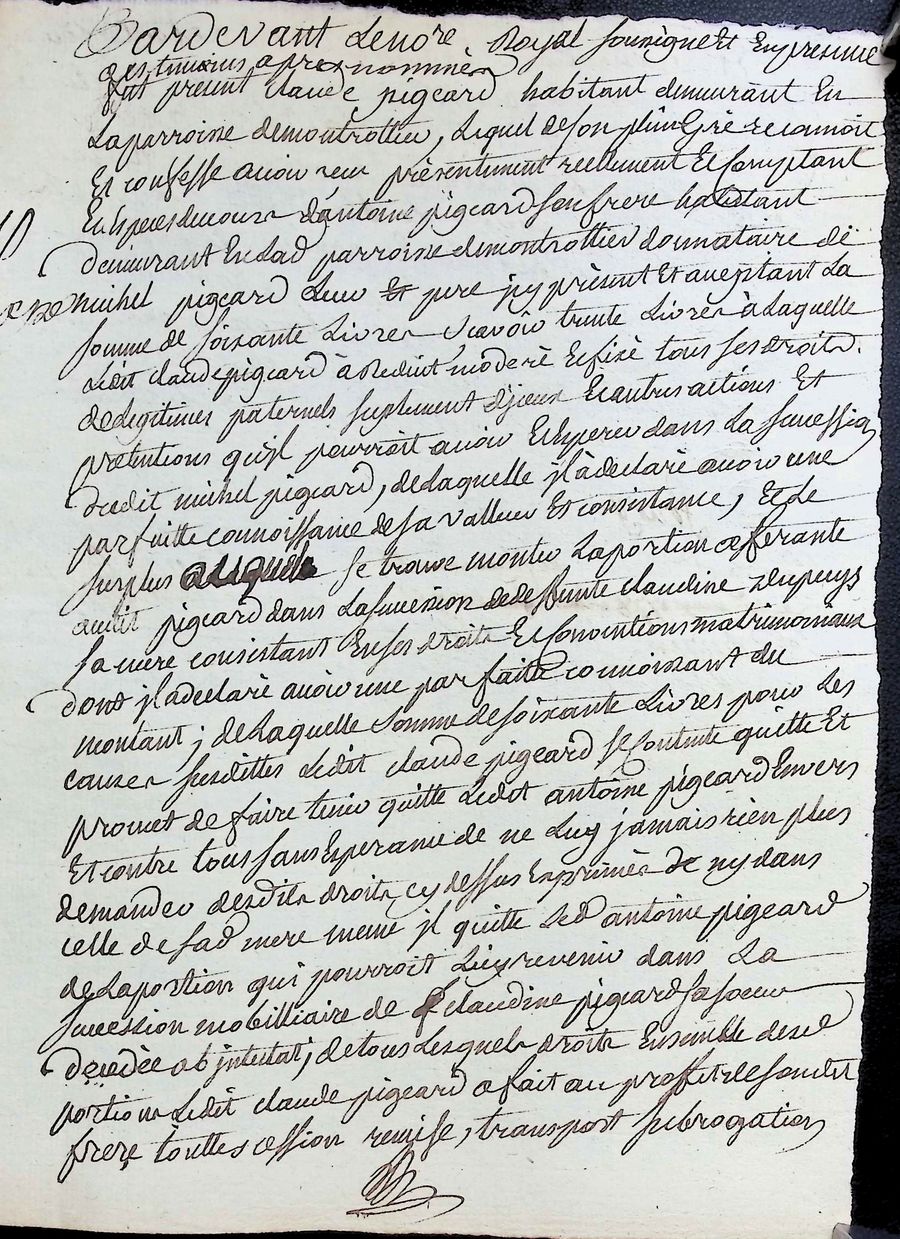 Pardevant Le no.re Royal soussigné Et En presence
des temoins apres nommés
fut present claude pigeard habitant demeurant En
La parroisse de montrottier, Lequel de son plein Gré reconnoit
Et confesse avoir reçu présentement reellement Et Comptant
En Especes de cours d'antoine pigeard son frere habitant
demeurant En Lad parroisse de montrottier donnataire de
michel pigeard Leur Et pere jcy présent Et acceptant La
somme de soixante Livres scavoir trente Livres à Laquelle
Ledit claude pigeard à Reduit moderé Et fixé tous ses droits
de Legitimes paternels suplement d'jceux Et autres actions Et
pretentions qu'jl pourroit avoir Et Esperer dans La succession
dudit michel pigeard, de Laquelle jl à declaré avoir une
parfaitte connoissance de sa valleur Et consistance, Et Le
surplus a Laquelle se trouve monter La portion afferante
audit pigeard dans La succession de deffunte claudine Dupuys
sa mere consistant En ses droits Et Conventions matrimoniaux
dont jl a declaré avoir une parfaitte connoissant du
montant; de Laquelle somme de soixante Livres pour Les
causes susdittes Ledit claude pigeard se Contente quitte Et
promet de faire tenir quitte Ledt antoine pigeard Envers
Et contre tous sans Esperance de ne Luy jamais rien plus
demander desdits droits cy dessus Exprimés de ny dans
celle de sad mere meme jl quitte Led antoine pigeard
de La portion qui pourroit Luy revenir dans La
succession mobilliaire de claudine pigeard sa soeur
decedée ab jntestat; de tous Lesquels droits Ensemble de sad
portion Ledit claude pigeard a fait au proffit de sondit
frere touttes cession remise, transport subrogation